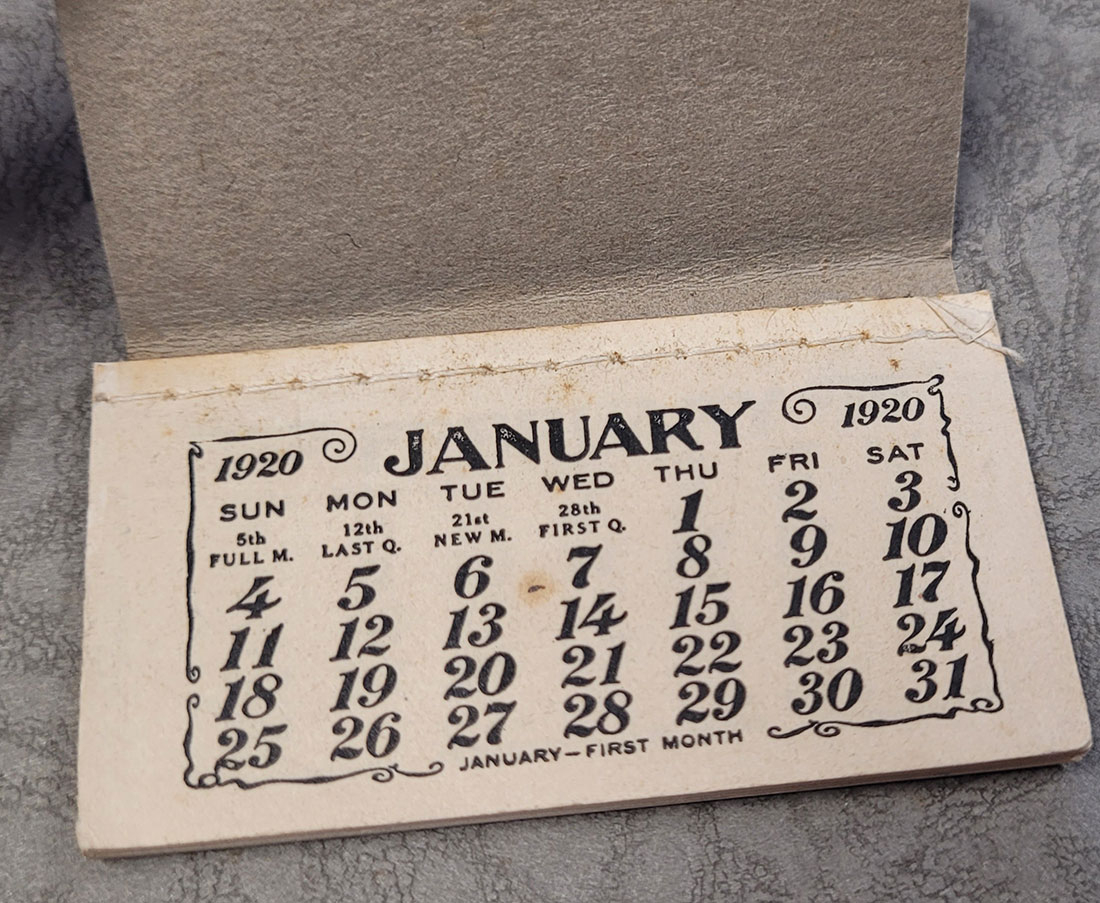 1920 JANUARY 1920
SUN MON TUE WED THU FRI SAT
5th FULL M. 12th LAST Q. 21st NEW M. 28th FIRST Q. 1 2 3
4 5 6 7 8 9 10
11 12 13 14 15 16 17
18 19 20 21 22 23 24
25 26 27 28 29 30 31
JANUARY–FIRST MONTH